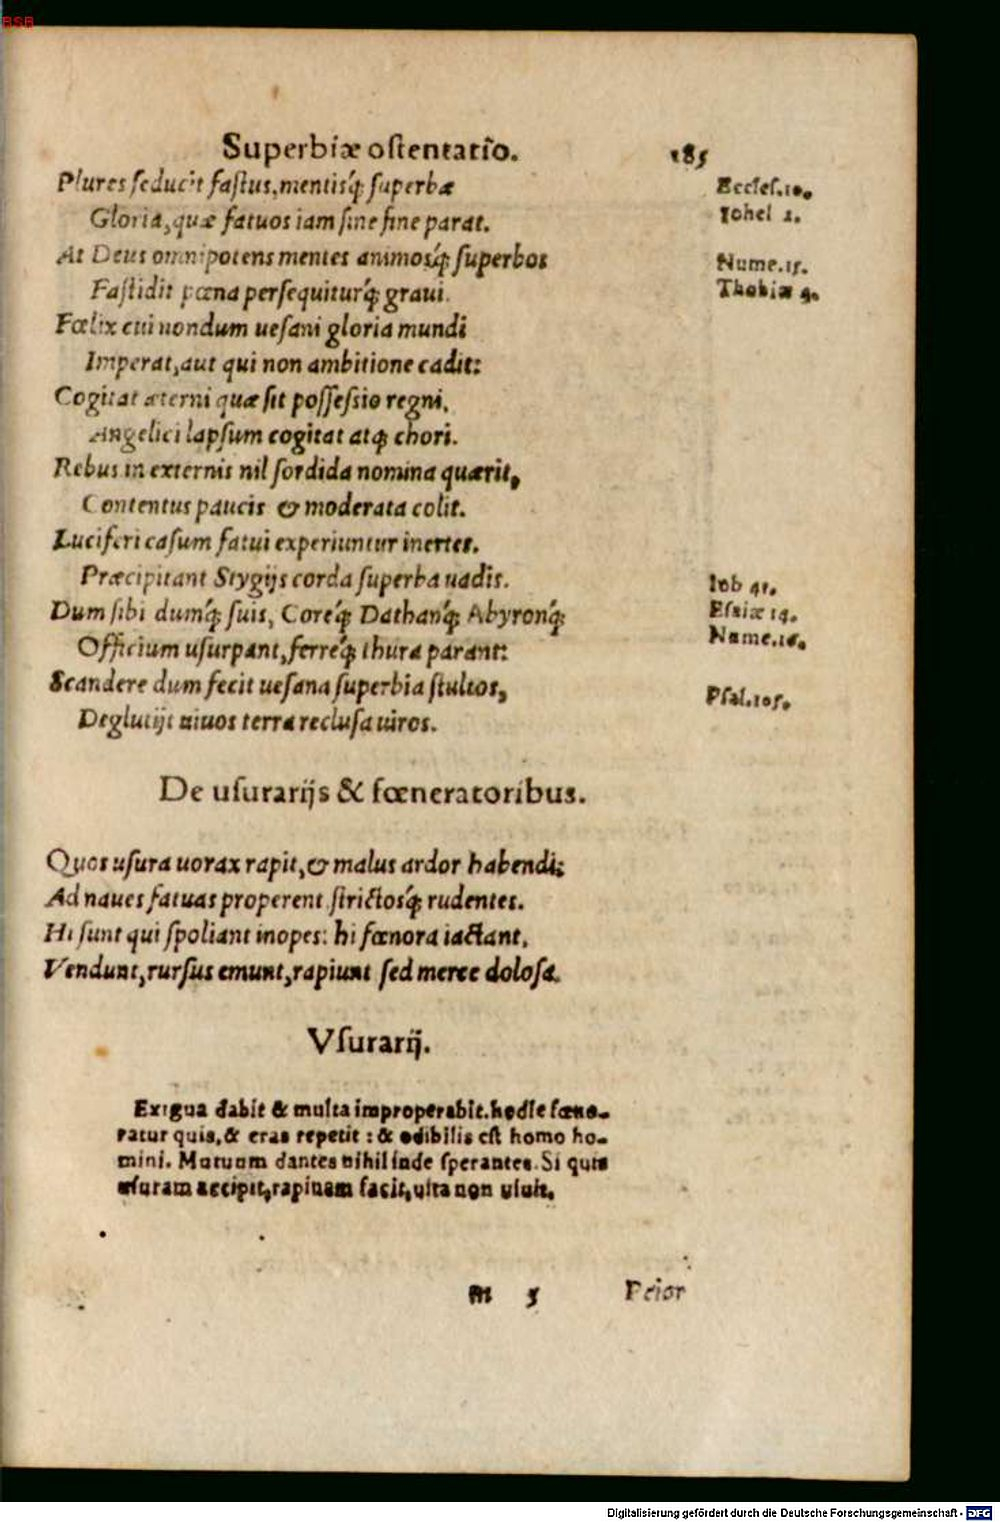 BSB
Superbiæ ostentatio. 185
Plures seducit fastus, mentisq́ue superbæ Eccles.10.
Gloria, quæ fatuos iam sine fine parat. Iohel 1.
At Deus omnipotens mentes animosq́ue superbos Nume.15.
Fastidit pœna persequiturq́ue graui. Thobiæ 4.
Fœlix cui nondum uesani gloria mundi
Imperat, aut qui non ambitione cadit:
Cogitat æterni quæ sit possessio regni,
Angelici lapsum cogitat atq; chori.
Rebus in externis nil sordida nomina quærit,
Contentus paucis & moderata colit.
Luciferi casum fatui experiuntur inertes.
Præcipitant Stygijs corda superba uadis. Iob 41.
Dum sibi dumq́ue suis, Coreq́ue Dathanq́ue Abyronq́ue Esaiæ 14.
Officium usurpant, ferreq́ue thura parant: Nume.16.
Scandere dum fecit uesana superbia stultos, Psal.105.
Deglutijt uiuos terra reclusa uiros.
De usurarijs & fœneratoribus.
Quos usura uorax rapit, & malus ardor habendi;
Ad naues fatuas properent strictosq́ue rudentes.
Hi sunt qui spoliant inopes: hi fœnora iactant,
Vendunt, rursus emunt, rapiunt sed merce dolosa.
Vsurarij.
Exigua dabit & multa improperabit. hodie fœne-
ratur quis, & cras repetit : & odibilis est homo ho-
mini. Mutuum dantes nihil inde sperantes. Si quis
usuram accipit, rapinam facit, uita non uiuit.
m 5 Peior
Digitalisierung gefördert durch die Deutsche Forschungsgemeinschaft - DFG